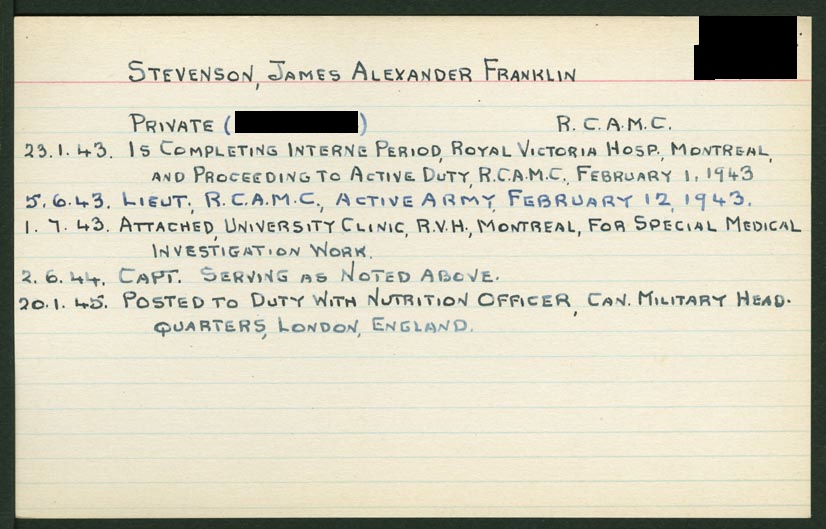 STEVENSON, JAMES ALEXANDER FRANKLIN
PRIVATE ( ) R.C.A.M.C.
23.1.43. IS COMPLETING INTERNE PERIOD, ROYAL VICTORIA HOSP., MONTREAL,
AND PROCEEDING TO ACTIVE DUTY, R.C.A.M.C., FEBRUARY 1, 1943
5.6.43. LIEUT., R.C.A.M.C., ACTIVE ARMY, FEBRUARY 12, 1943.
1.7.43. ATTACHED, UNIVERSITY CLINIC, R.V.H., MONTREAL, FOR SPECIAL MEDICAL
INVESTIGATION WORK.
2.6.44. CAPT. SERVING AS NOTED ABOVE.
20.1.45. POSTED TO DUTY WITH NUTRITION OFFICER, CAN. MILITARY HEAD-
QUARTERS, LONDON, ENGLAND.